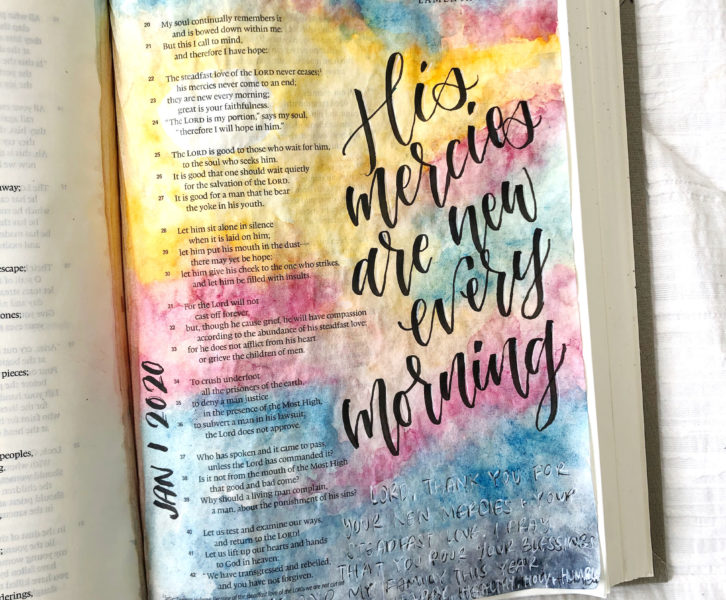 way;
scape;
ones;
pieces;
peoples,
g.
derings,
20 My soul continually remembers it
and is bowed down within me.
21 But this I call to mind,
and therefore I have hope:
22 The steadfast love of the LORD never ceases;
his mercies never come to an end;
23 they are new every morning;
great is your faithfulness.
24 “The LORD is my portion,” says my soul,
“therefore I will hope in him.”
25 The LORD is good to those who wait for him,
to the soul who seeks him.
26 It is good that one should wait quietly
for the salvation of the LORD.
27 It is good for a man that he bear
the yoke in his youth.
28 Let him sit alone in silence
when it is laid on him;
29 let him put his mouth in the dust—
there may yet be hope;
30 let him give his cheek to the one who strikes,
and let him be filled with insults.
31 For the Lord will not
cast off forever,
32 but, though he cause grief, he will have compassion
according to the abundance of his steadfast love;
33 for he does not afflict from his heart
or grieve the children of men.
34 To crush underfoot
all the prisoners of the earth,
35 to deny a man justice
in the presence of the Most High,
36 to subvert a man in his lawsuit,
the Lord does not approve.
37 Who has spoken and it came to pass,
unless the Lord has commanded it?
38 Is it not from the mouth of the Most High
that good and bad come?
39 Why should a living man complain,
a man, about the punishment of his sins?
40 Let us test and examine our ways,
and return to the LORD!
41 Let us lift up our hearts and hands
to God in heaven:
42 “We have transgressed and rebelled,
and you have not forgiven.
His
mercies
are new
every
morning
JAN 1 2020
LORD, THANK YOU FOR
YOUR NEW MERCIES & YOUR
STEADFAST LOVE. I PRAY
THAT YOU POUR YOUR BLESSINGS
MY FAMILY THIS YEAR.
HEALTHY, HOLY, HUMBLE